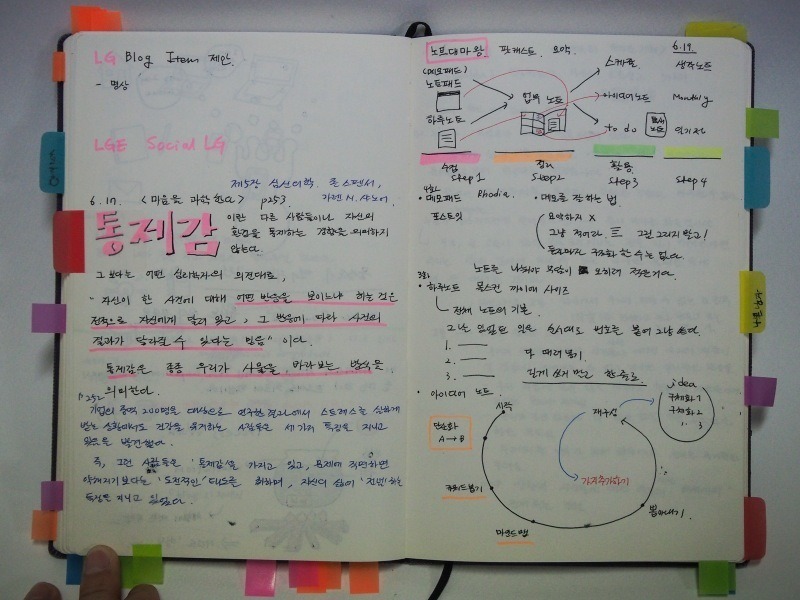 LG Blog Item 제안.
- 명상
LGE Social LG
제5장 심신의학. 존 스펜서,
6.17. <마음을 과학한다> p253. 카렌 N. 샤노어.
통제감 이란 다른 사람들이나 자신의
환경을 통제하는 경향을 의미하지
않는다.
그보다는 어떤 심리학자의 의견대로,
"자신이 한 사건에 대해 어떤 반응을 보이느냐 하는 것은
전적으로 자신에게 달려 있고, 그 반응에 따라 사건의
결과가 달라질 수 있다는 믿음" 이다.
통제감은 종종 우리가 사물을 바라보는 방식을
의미한다.
p252
기업의 중역 200명을 대상으로 연구한 결과에서 스트레스를 심하게
받는 상황에서도 건강을 유지하는 사람들은 세 가지 특징을 지니고
있음을 발견했다.
즉, 그런 사람들은 '통제감'을 가지고 있고, 문제에 직면하면
약해지기보다는 '도전적인' 태도를 취하며, 자신의 삶에 '전념'하는
특징을 지니고 있었다.
노트대마왕 팟캐스트 요약 6.19.
(메모패드)
노트패드
하루노트
업무 노트
스케쥴 생각노트
아이디어노트 Monthly
to do 독서노트 일기장
수집 정리 활용
Step 1 Step 2 Step 3 Step 4
· 메모패드 Rhodia.
포스트잇
· 메모를 잘 하는 법.
요약하지 X
그냥 적어라. 그림 그리지 말고!
듣자마자 구조화 할 수는 없다.
노트를 나눠야 오히려
· 하루노트 몰스킨 까이에 사이즈
전체 노트의 기본.
그날 있었던 일을 순서대로 번호를 붙여 그냥 쓴다.
1.
2. 다 때려넣기.
3. 길게 쓰지 말고 한 줄로.
· 아이디어 노트.
시작
단순화
A → B
키워드뽑기
마인드맵
뽑아내기.
가지추가하기
재구성
idea
구체화 1
구체화 2
〃 3
아이디어